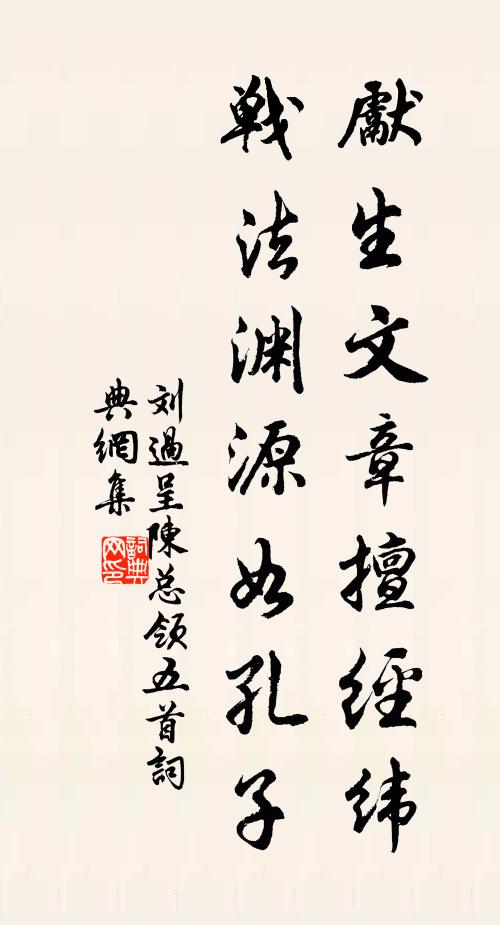 獻生文章擅經緯
戰法渊源如孔子
刘過呈陳总领五首詞
典網集
詞典网印